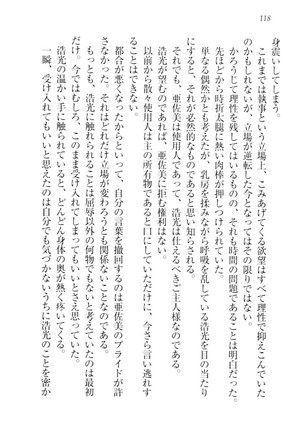 118
身震いしてしまう。
これまでは執事という立場上、こみあげてくる欲望はすべて理性で抑えこんでいた
のかもしれないが、立場が逆転した今となってはその限りではない。
かろうじて理性を残してはいるものの、それも時間の問題であることは明白だった。
先ほどから時折太腿に熱い肉棒が押しつけられていた。
単なる偶然かとも考えたが、乳房を揉みながら呼吸を乱している浩光を目の当たり
にすると、それが必然的なものであると思い知らされる。
それでも、亜佐美は使用人であって、浩光は仕えるべきご主人様なのである。
浩光が望むのであれば、亜佐美に拒む権利はない。
以前から散々使用人は主の所有物であると口にしていただけに、今さら言い逃れす
ることはできない。
都合が悪くなったからといって、自分の言葉を撤回するのは亜佐美のプライドが許
さなかった。それはどれだけ立場が変わろうとも関係ないことなのである。
もっとも、浩光に触れられることは屈辱以外の何物でもないと考えていたのは最初
だけ。今ではむしろ、このまま受け入れてしまいたいとさえ思っていた。
浩光の温かい手に触られていると、どんどん身体の奥が熱く疼いてくる。
一瞬、受け入れてもいいと思えたのは自分でも気づかないうちに浩光のことを密か